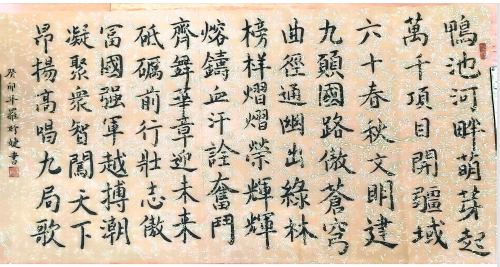 鴨池河畔萌芽起
萬千項目開疆域
六十春秋文明建
九頭國路傲蒼穹
曲徑通幽出綠林
榜樣熠熠榮輝輝
熔鑄血汗詮奮鬥
齊舞華章迎未来
砥礪前行壯志傲
冨國强軍越搏潮
凝聚衆智闖天下
昂揚高唱九局歌
癸卯年羅書